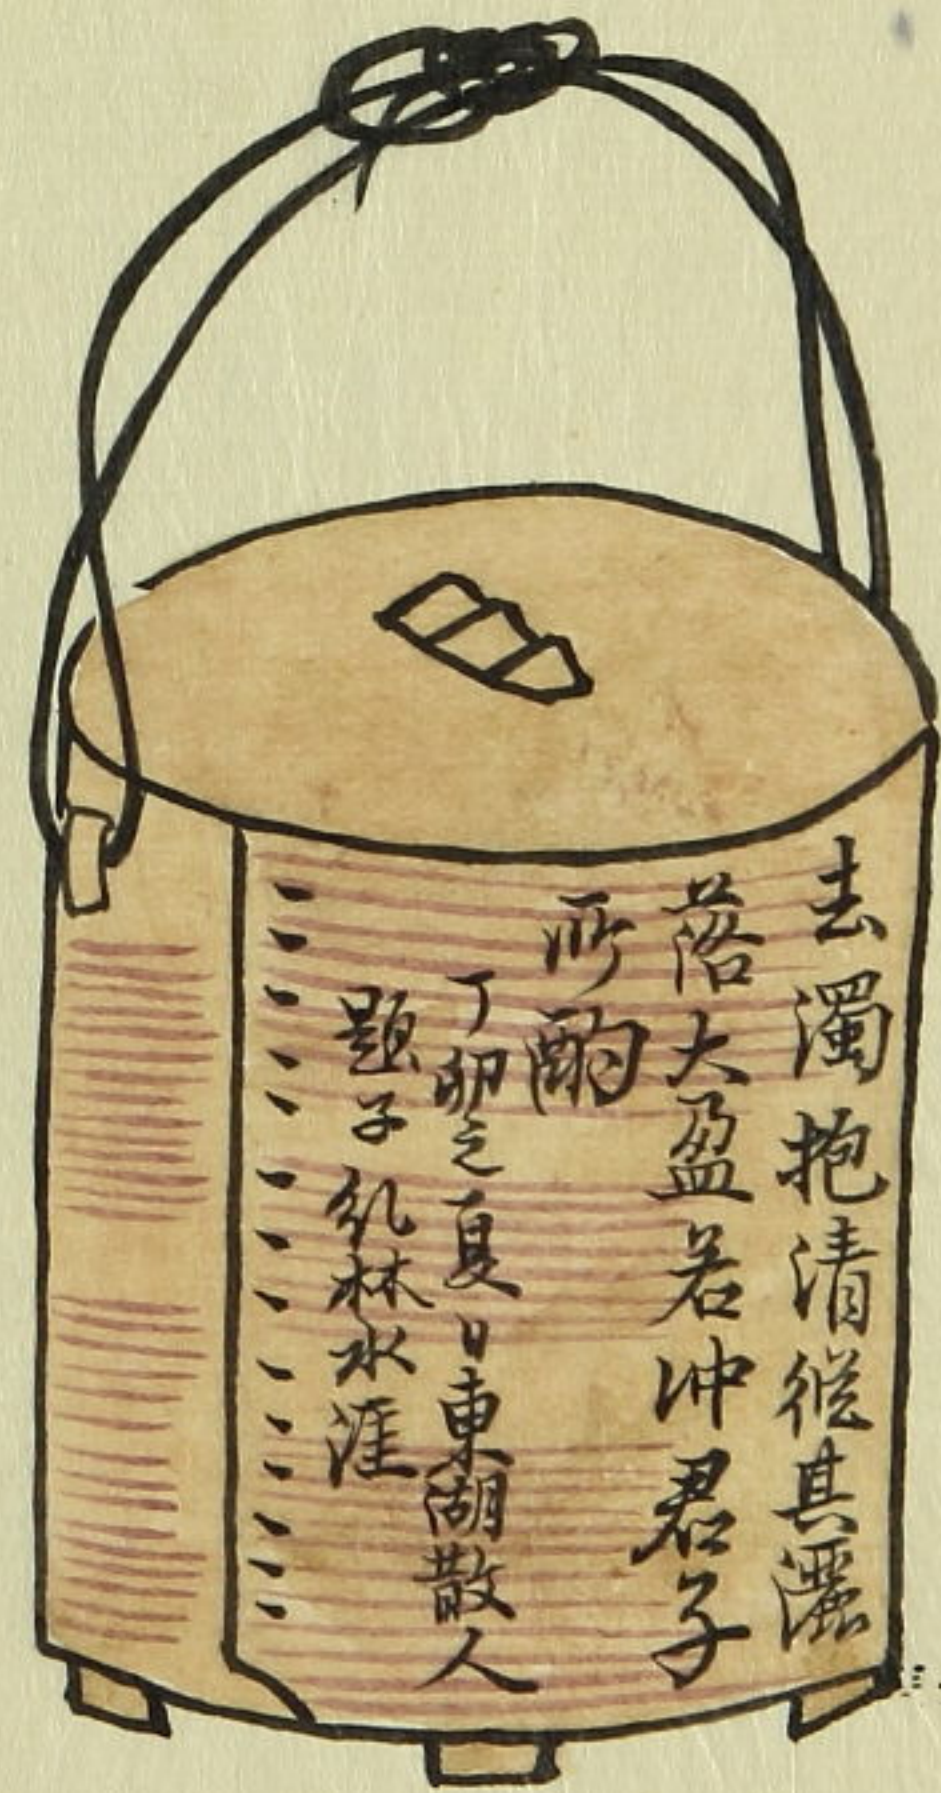 去濁抱清従其灑
落大盈若沖君子
所酌
丁卯之夏日東湖散人
題于糺林水涯